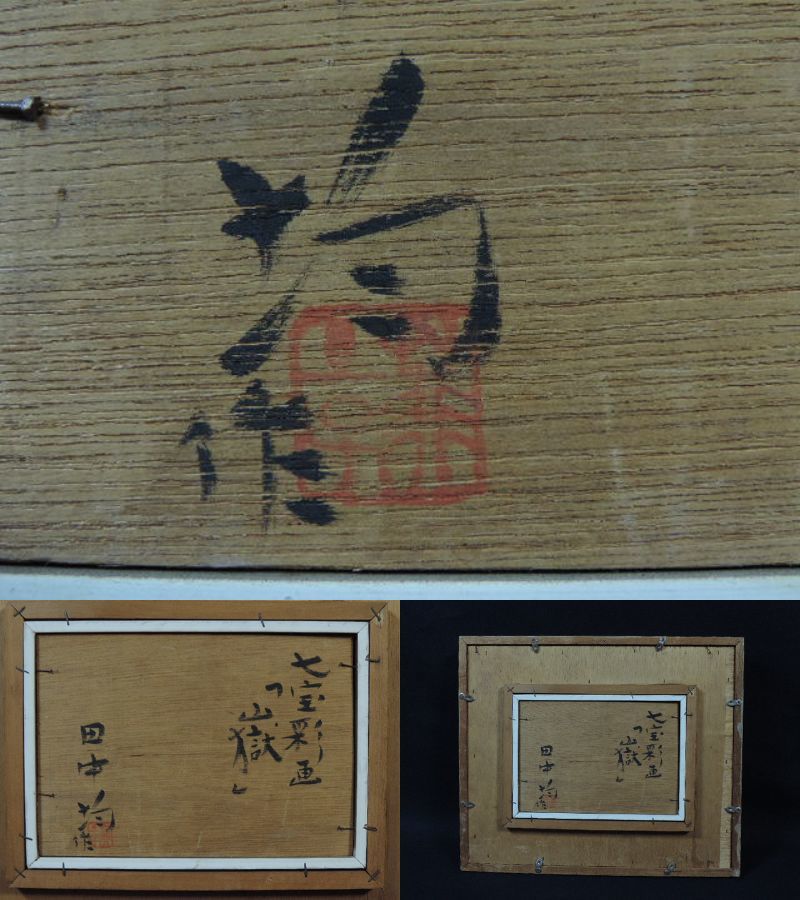 均
作
七宝彩画
「山嶽」
田中 均作
七宝彩画
「山嶽」
田中 均作